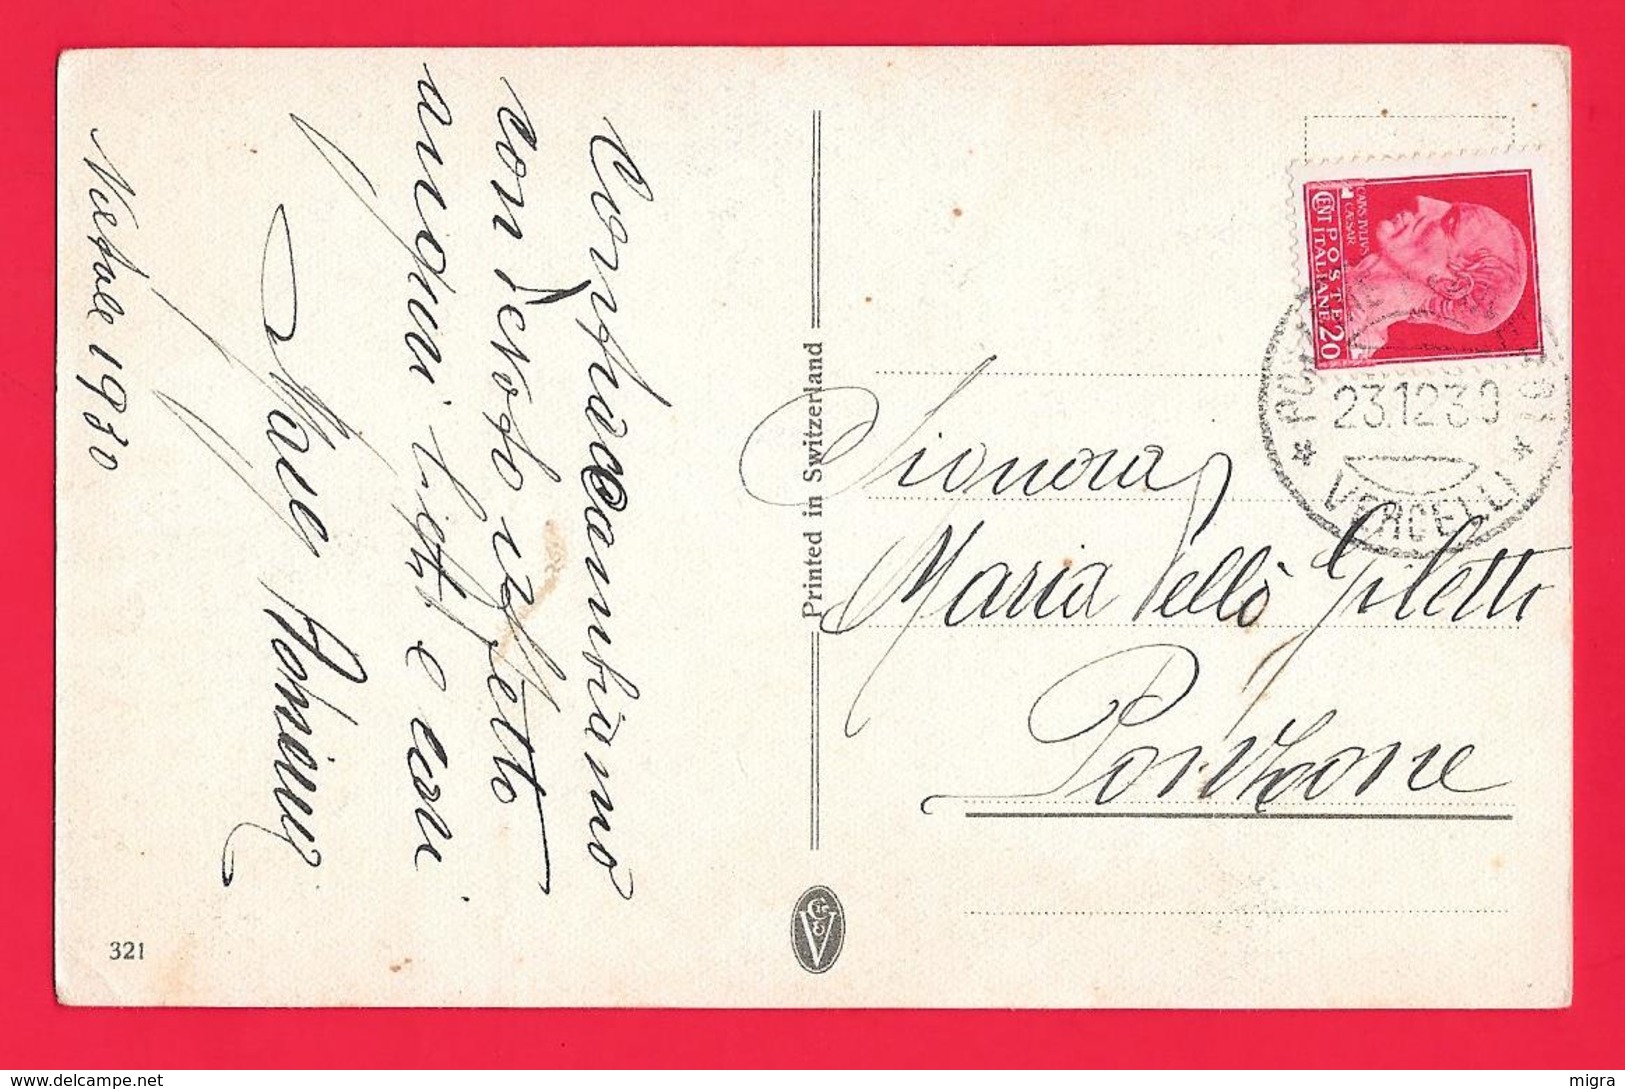 Contraccambiamo
con devoto affetto
auguri lieti e cari
Natale 1930
321
Printed in Switzerland
CAIVS IVLIVS
CAESAR
POSTE
ITALIANE
CENT 20
23.12.30
VERCELLI
Signora
Maria Vellò Giletti
Ponzone
migra